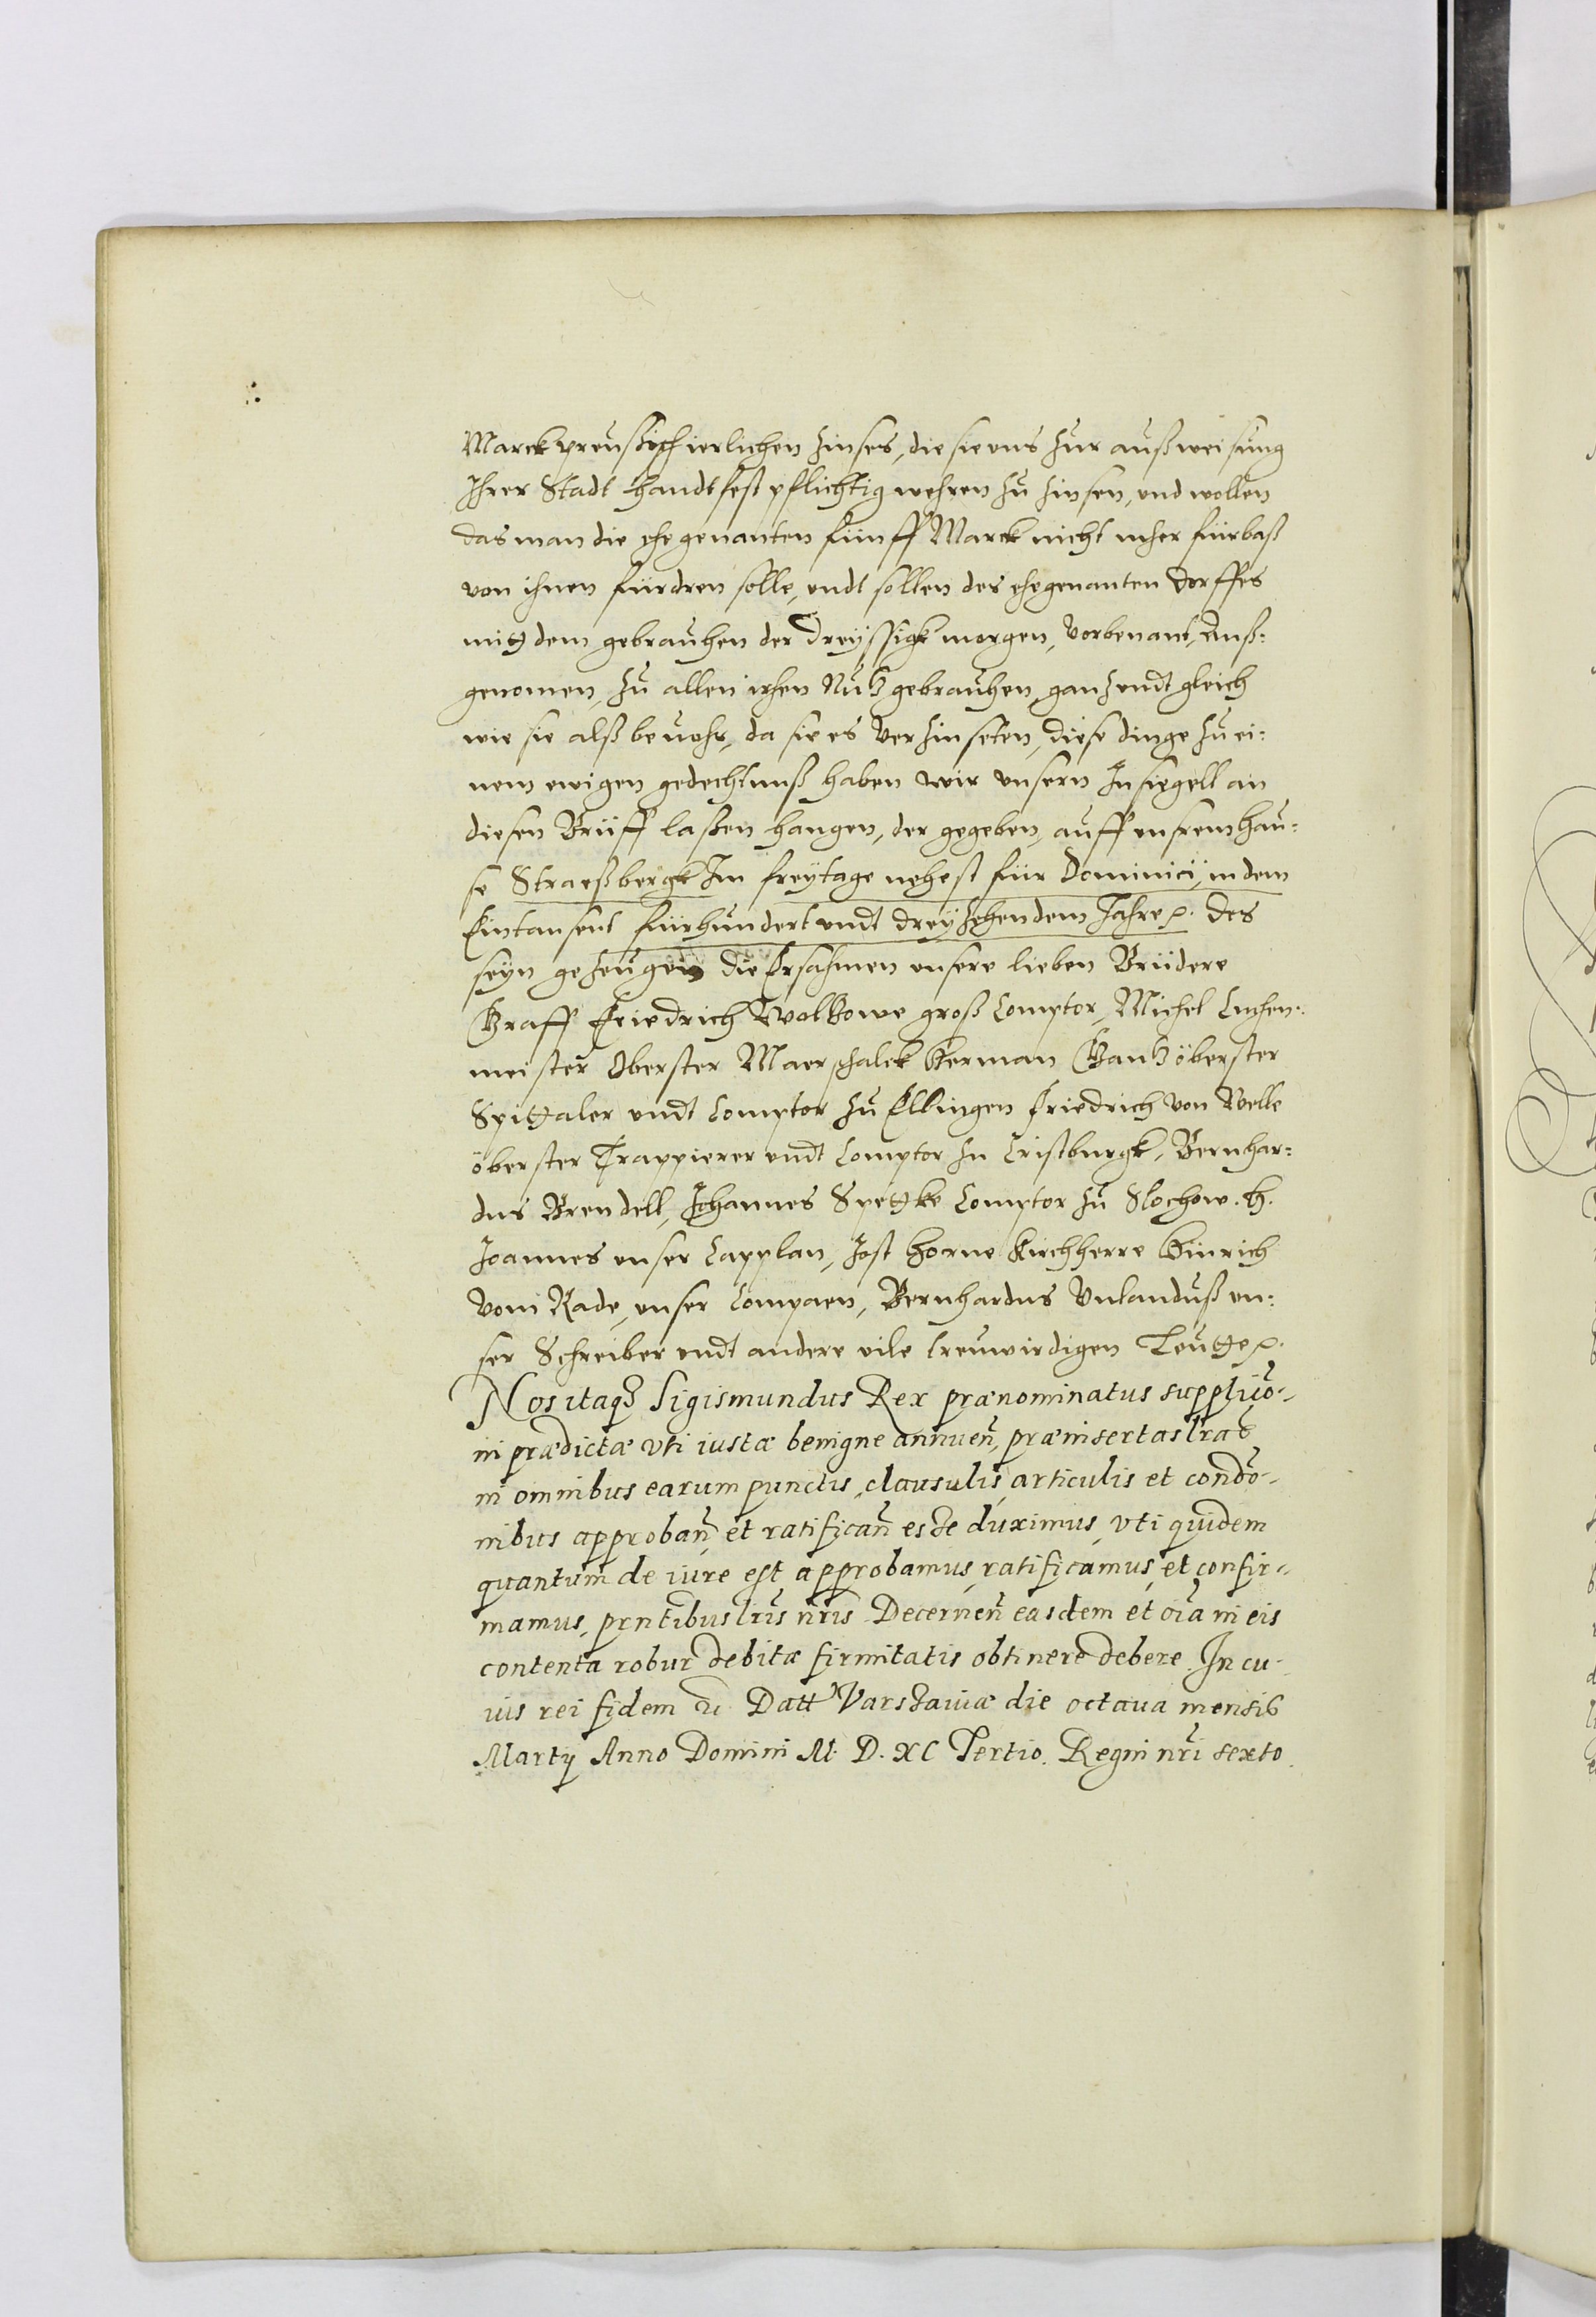 Marck preussisch ierlichen zinses, die sie uns zur außweisung
Ihrer Stadt handtfest pflichtig wehren zu zinsen, und wollen
das man die ehegenanten fünff Marck nicht meher fürbaß
von ihnen fürdren solle, undt sollen des ehegenanten Dorffes
mitt dem gebrauchen der dreyssigk morgen, vorbenant, Auß:
genomen, zu allen ihren Nutz gebrauchen, ganz undt gleich
wie sie alß beuohr, da sie es verzinseten, diese dinge zu ei:
nem ewigen gedechtnuß haben wir unsern Insiegell an
diesen Brüff laßen hangen, der gegeben, auff unserem hau:
se Straeßbergk Im freytage nehest für Dominici, in dem
Eintausent fürhundert undt dreyzehendem Jahre etc. Des
seyn gezeugen die Ersahmen unsere lieben Brüdere
Graff Friedrich Wolkowe groß Comptor, Michel Cuchen:
meister Oberster Maerschalck Herman Gantz öberster
Spittaler undt Comptor zu Elbingen Friedrich von Welle
öberster Trappierer undt Comptor zu Cristburgk, Bernhar:
dus Brendell, Johannes Spettke Comptor zu Slochow. H.
Joannes unser Capplan, Jost Horne Kirchherre Hinrich
vom Rade, unser Compaen, Bernhardus Unlanduß un:
ser Schreiber undt andere vile treuwirdigen Leutte etc.
Nos itaq3 Sigismundus Rex prænominatus supplicõ-
ni prædictæ vti iustæ benigne annueñ, præinsertas lras
in omnibus earum punctis, clausulis, articulis et condõ-
nibus approbañ, et ratificañ esse duximus, vti quidem
quantum de iure est approbamus, ratificamus, et confir-
mamus, prntibus lris nris Decerneñ easdem et oia in eis
contenta robur debitæ firmitatis obtinere debere. In cu-
ius rei fidem etc Datt Varszaviæ die octaua mensis
Martij Anno Domini M. D. XC Tertio. Regni nri sexto.